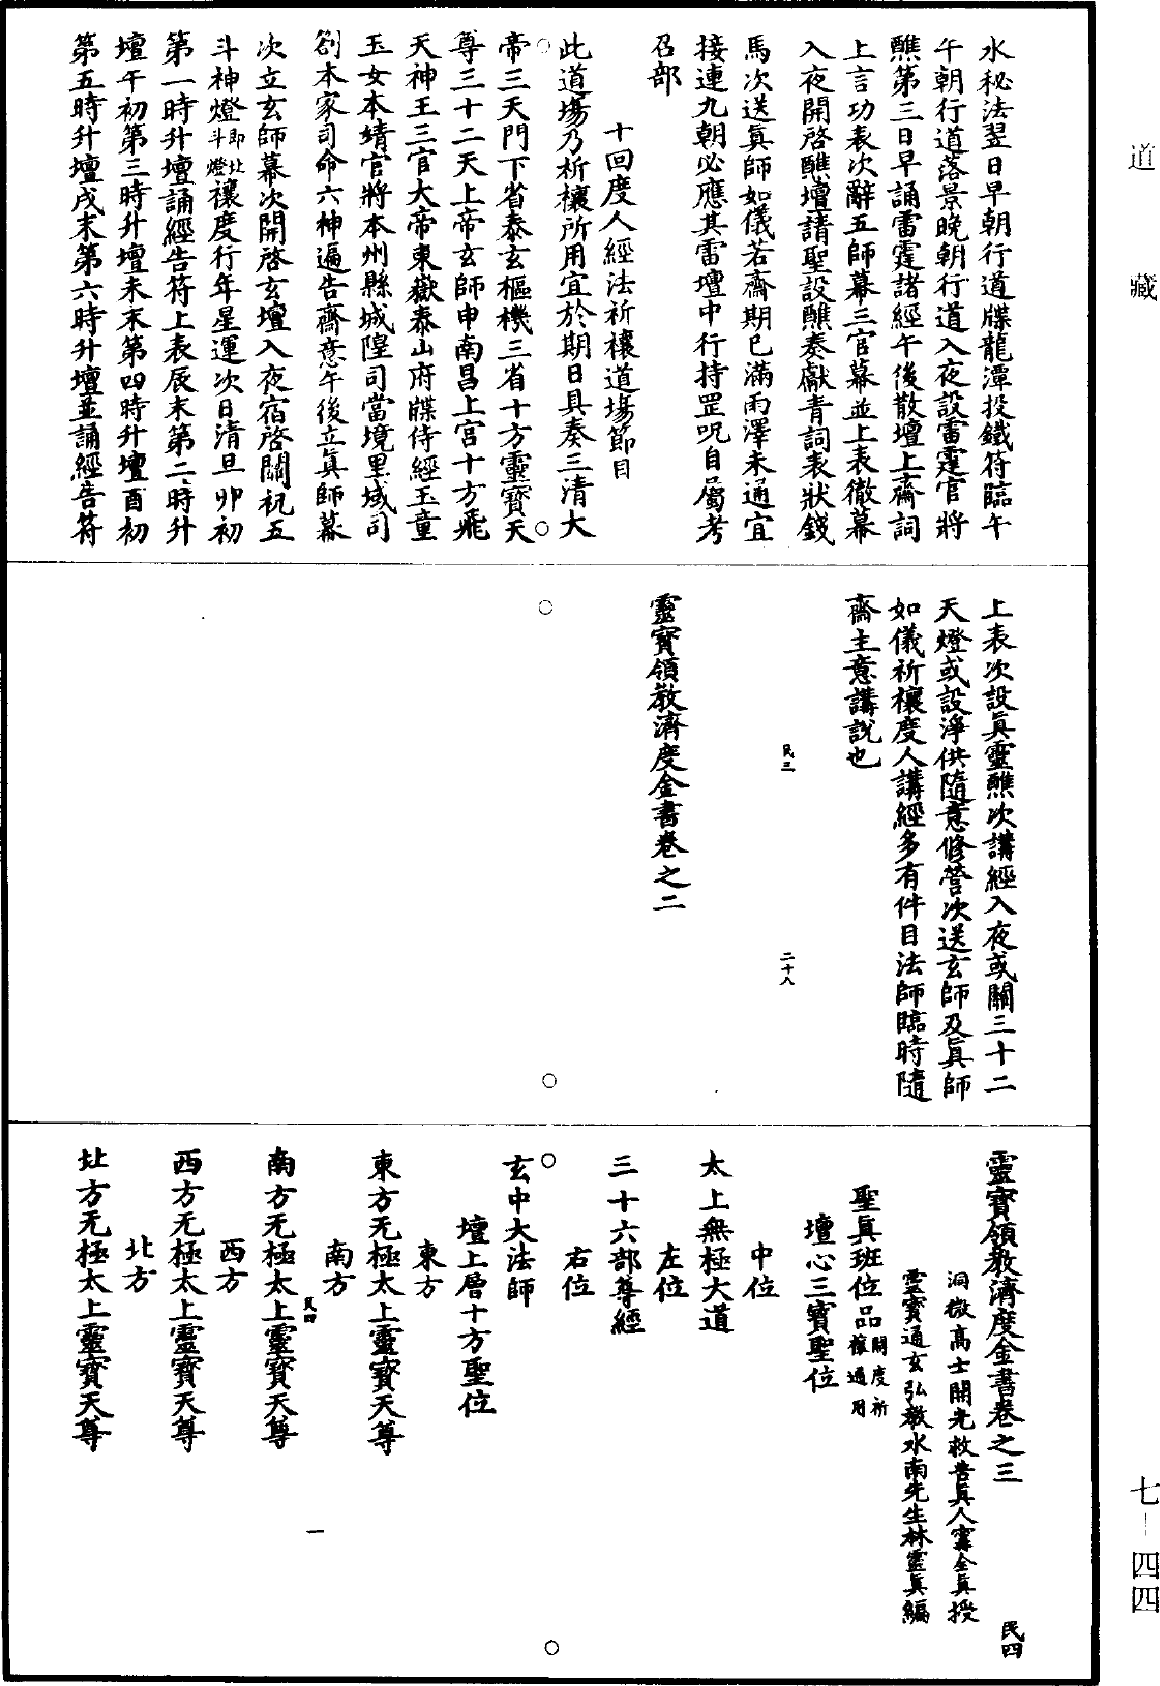 道藏
水秘法翌日早朝行道牒龍潭投鐵符臨午
午朝行道落景晚朝行道入夜設雷霆官將
醮第三日早誦雷霆諸經午後散壇上齋詞
上言功表次辭五師幕三官幕並上表徹幕
入夜開啓醮壇請聖設醮奏獻青詞表狀錢
馬次送眞師如儀若齋期已滿雨澤未通宜
接連九朝必應其雷壇中行持罡呪自屬考
召部
十回度人經法祈禳道場節目
此道場乃祈禳所用宜於期日具奏三清大
帝三天門下省泰玄樞機三省十方靈寶天
尊三十二天上帝玄師申南昌上宮十方飛
天神王三官大帝東嶽泰山府牒侍經玉童
玉女本靖官將本州縣城隍司當境里域司
劄本家司命六神遍告齋意午後立眞師幕
次立玄師幕次開啓玄壇入夜宿啓關祝五
斗神燈即北斗燈禳度行年星運次日清旦卯初
第一時升壇誦經告符上表辰末第二時升
壇午初第三時升壇未末第四時升壇酉初
第五時升壇戌末第六時升壇並誦經告符
上表次設眞靈醮次講經入夜或關三十二
天燈或設淨供隨意修營次送玄師及眞師
如儀祈禳度人講經多有件目法師臨時隨
齋主意講說也
民三
二十八
靈寶領教濟度金書卷之二
靈寶領教濟度金書卷之三
民四
洞微高士開光救苦眞人寗全眞授
靈寶通玄弘教水南先生林靈眞編
聖眞班位品開度祈禳通用
壇心三寶聖位
中位
太上無極大道
左位
三十六部尊經
右位
玄中大法師
壇上層十方聖位
東方
東方无極太上靈寶天尊
南方
民四
一
南方无極太上靈寶天尊
西方
西方无極太上靈寶天尊
北方
北方无極太上靈寶天尊
七-四四